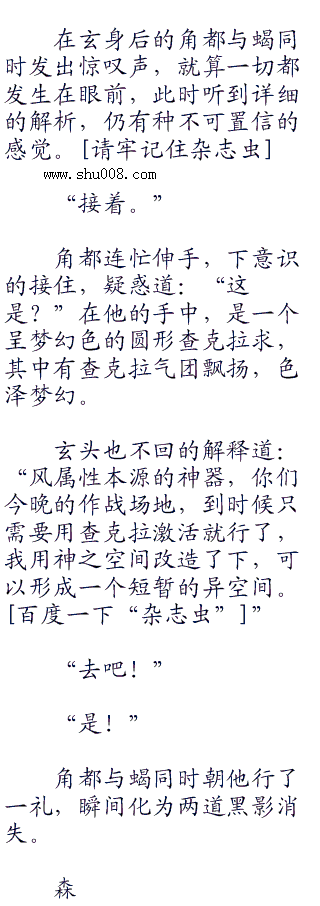 在玄身后的角都与蝎同
时发出惊叹声，就算一切都
发生在眼前，此时听到详细
的解析，仍有种不可置信的
感觉。[请牢记住杂志虫]
www.shu008.com
“接着。”
角都连忙伸手，下意识
的接住，疑惑道：“这
是？”在他的手中，是一个
呈梦幻色的圆形查克拉求，
其中有查克拉气团飘扬，色
泽梦幻。
玄头也不回的解释道：
“风属性本源的神器，你们
今晚的作战场地，到时候只
需要用查克拉激活就行了，
我用神之空间改造了下，可
以形成一个短暂的异空间。
[百度一下“杂志虫”]”
“去吧！”
“是！”
角都与蝎同时朝他行了
一礼，瞬间化为两道黑影消
失。
森